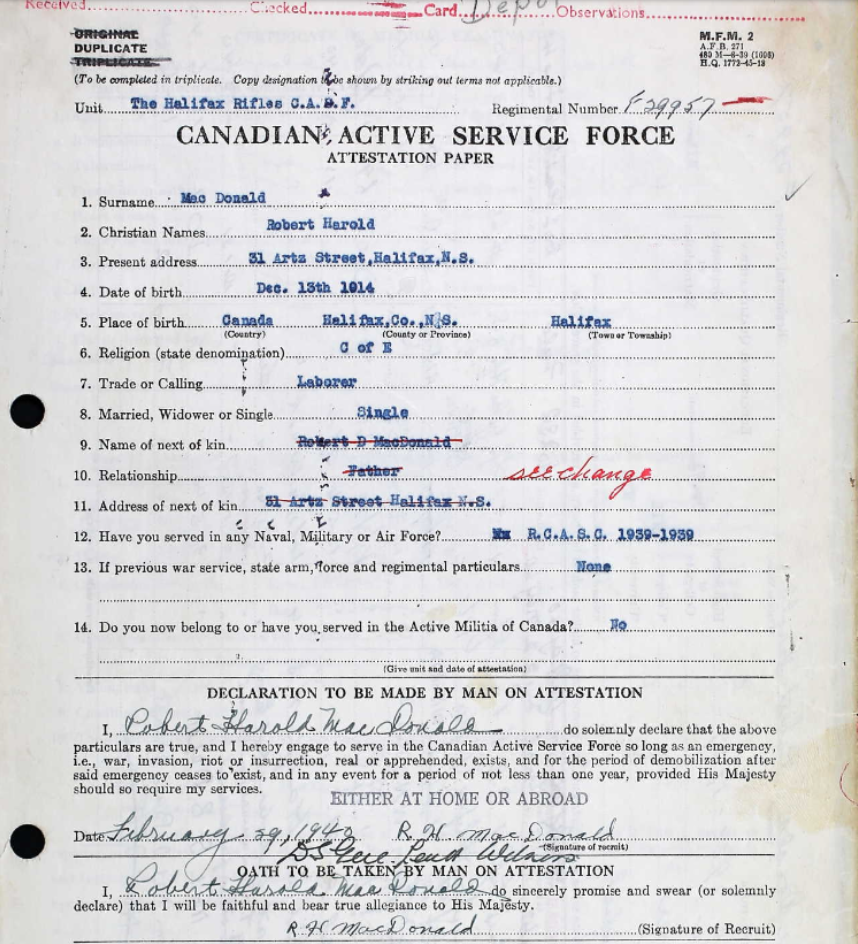 Received Checked Card Depot Observations
ORIGINAL
DUPLICATE
TRIPLICATE
M.F.M. 2
A.F.B. 271
450 M—8-39 (1093)
H.Q. 1772-45-18
(To be completed in triplicate. Copy designation to be shown by striking out terms not applicable.)
Unit The Halifax Rifles C.A.S.F. Regimental Number F 29957
CANADIAN ACTIVE SERVICE FORCE
ATTESTATION PAPER
1. Surname Mac Donald
2. Christian Names Robert Harold
3. Present address 31 Artz Street, Halifax, N.S.
4. Date of birth Dec. 13th 1914
5. Place of birth Canada Halifax, Co., N.S. Halifax
(Country) (County or Province) (Town or Township)
6. Religion (state denomination) C of E
7. Trade or Calling Laborer
8. Married, Widower or Single Single
9. Name of next of kin Robert D MacDonald
10. Relationship Father see change
11. Address of next of kin 31 Artz Street Halifax N.S.
12. Have you served in any Naval, Military or Air Force? R.C.A.S.C. 1939-1939
13. If previous war service, state arm, force and regimental particulars None
14. Do you now belong to or have you served in the Active Militia of Canada? No
(Give unit and date of attestation)
DECLARATION TO BE MADE BY MAN ON ATTESTATION
I, Robert Harold Mac Donald do solemnly declare that the above
particulars are true, and I hereby engage to serve in the Canadian Active Service Force so long as an emergency,
i.e., war, invasion, riot or insurrection, real or apprehended, exists, and for the period of demobilization after
said emergency ceases to exist, and in any event for a period of not less than one year, provided His Majesty
should so require my services.
EITHER AT HOME OR ABROAD
Date February 29, 1940 R. H. MacDonald
(Signature of recruit)
OATH TO BE TAKEN BY MAN ON ATTESTATION
I, Robert Harold Mac Donald do sincerely promise and swear (or solemnly
declare) that I will be faithful and bear true allegiance to His Majesty.
R H MacDonald (Signature of Recruit)